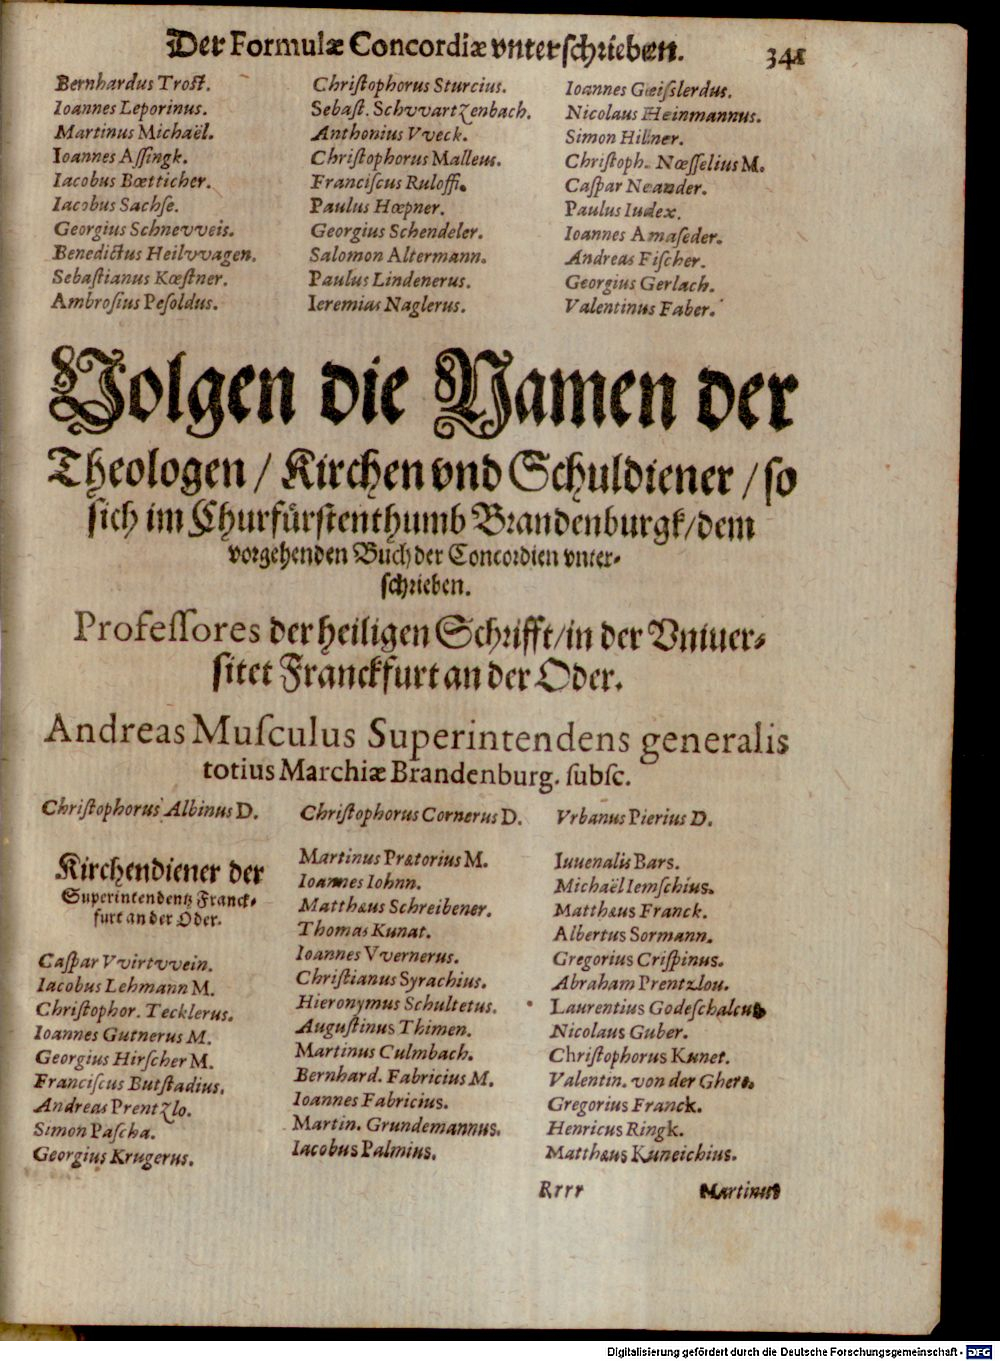 Der Formulæ Concordiæ vnterschrieben. 341
Bernhardus Trost.
Ioannes Leporinus.
Martinus Michaël.
Ioannes Assingk.
Iacobus Bœtticher.
Iacobus Sachse.
Georgius Schnevveis.
Benedictus Heilvvagen.
Sebastianus Kœstner.
Ambrosius Pesoldus.
Christophorus Sturcius.
Sebast. Schvvartzenbach.
Anthonius Vveck.
Christophorus Malleus.
Franciscus Ruloffi.
Paulus Hœpner.
Georgius Schendeler.
Salomon Altermann.
Paulus Lindenerus.
Ieremias Naglerus.
Ioannes Geisslerdus.
Nicolaus Heinmannus.
Simon Hillner.
Christoph. Nœsselius M.
Caspar Neander.
Paulus Iudex.
Ioannes Amaseder.
Andreas Fischer.
Georgius Gerlach.
Valentinus Faber.
Volgen die Namen der
Theologen / Kirchen vnd Schuldiener / so
sich im Churfürstenthumb Brandenburgk/dem
vorgehenden Buch der Concordien vnter-
schrieben.
Professores der heiligen Schrifft/in der Vniuer-
sitet Franckfurt an der Oder.
Andreas Musculus Superintendens generalis
totius Marchiæ Brandenburg. subsc.
Christophorus Albinus D.
Christophorus Cornerus D.
Vrbanus Pierius D.
Kirchendiener der
Superintendentz Franck-
furt an der Oder.
Caspar Vvirtvvein.
Iacobus Lehmann M.
Christophor. Tecklerus.
Ioannes Gutnerus M.
Georgius Hirscher M.
Franciscus Butstadius.
Andreas Prentzlo.
Simon Pascha.
Georgius Krugerus.
Martinus Prætorius M.
Ioannes Iohnn.
Matthæus Schreibener.
Thomas Kunat.
Ioannes Vvernerus.
Christianus Syrachius.
Hieronymus Schultetus.
Augustinus Thimen.
Martinus Culmbach.
Bernhard. Fabricius M.
Ioannes Fabricius.
Martin. Grundemannus.
Iacobus Palmius.
Iuuenalis Bars.
Michaël Iemschius.
Matthæus Franck.
Albertus Sormann.
Gregorius Crispinus.
Abraham Prentzlou.
Laurentius Godeschalcus
Nicolaus Guber.
Christophorus Kunet.
Valentin. von der Ghere.
Gregorius Franck.
Henricus Ringk.
Matthæus Kuneichius.
Rrrr Martinus
Digitalisierung gefördert durch die Deutsche Forschungsgemeinschaft - DFG